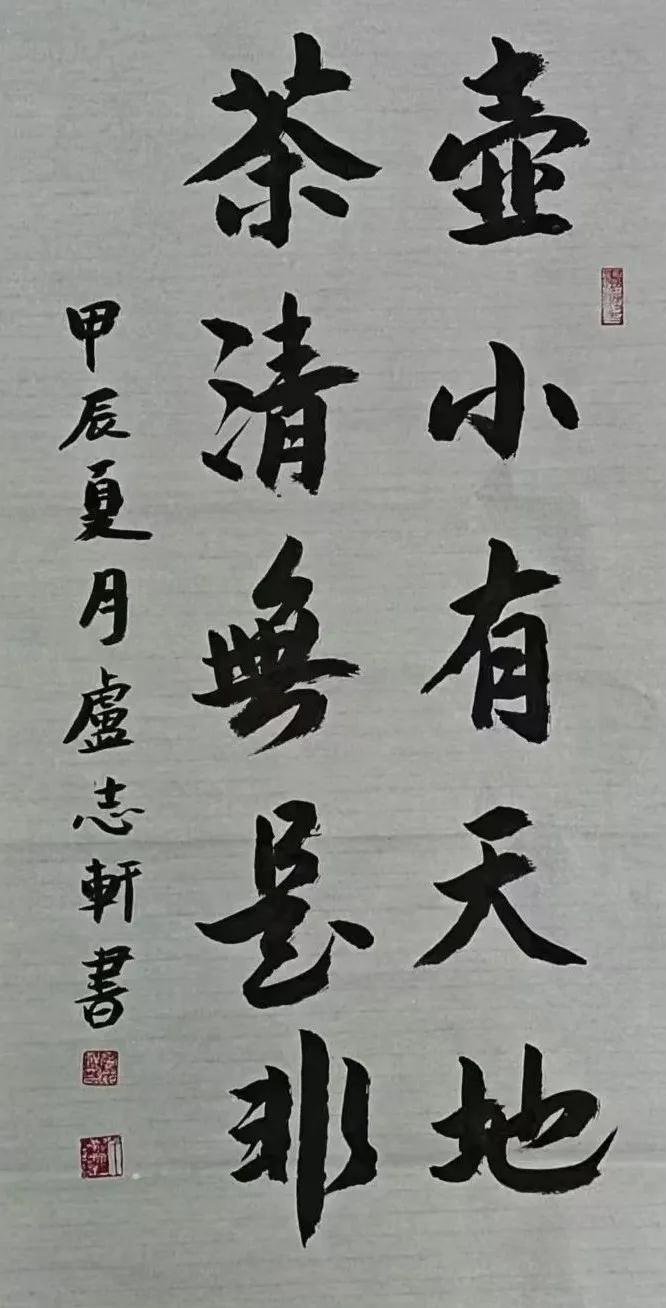 壺小有天地
茶清無是非
甲辰夏月盧志軒書